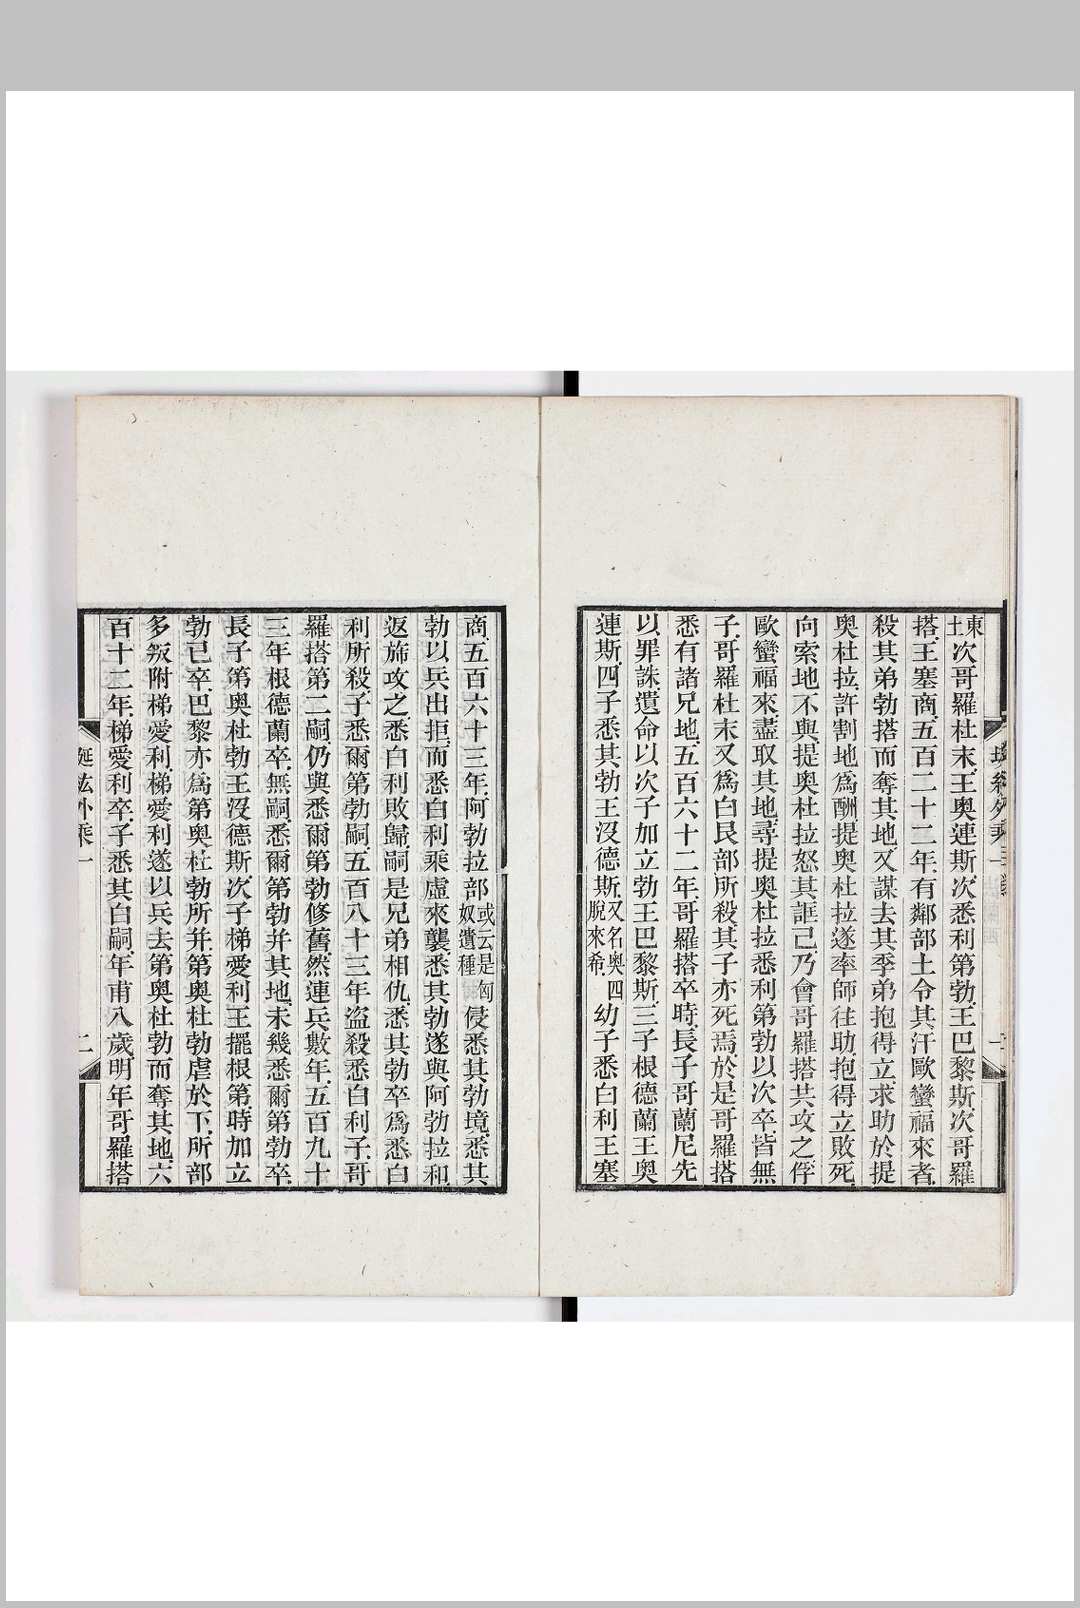 東土次哥羅杜末王奧連斯次悉利第勃王巴黎斯次哥羅
搭王塞商五百二十二年有鄰部土令其汗歐蠻福來者
殺其弟勃搭而奪其地又謀去其季弟抱得立求助於提
奧杜拉許割地爲酬提奧杜拉遂率師往助抱得立敗死
向索地不與提奧杜拉怒其誑己乃會哥羅搭共攻之俘
歐蠻福來盡取其地尋提奧杜拉悉利第勃以次卒皆無
子哥羅杜末又爲白艮部所殺其子亦死焉於是哥羅搭
悉有諸兄地五百六十二年哥羅搭卒時長子哥蘭尼先
以罪誅遺命以次子加立勃王巴黎斯三子根德蘭王奧
連斯四子悉其勃王沒德斯又名奧四脫來希幼子悉白利王塞
商五百六十三年阿勃拉部或云是匈奴遺種侵悉其勃境悉其
勃以兵出拒而悉白利乘虛來襲悉其勃遂與阿勃拉和
返旆攻之悉白利敗歸嗣是兄弟相仇悉其勃卒爲悉白
利所殺子悉爾第勃嗣五百八十三年盜殺悉白利子哥
羅搭第二嗣仍與悉爾第勃修舊然連兵數年五百九十
三年根德蘭卒無嗣悉爾第勃并其地未幾悉爾第勃卒
長子第奧杜勃王沒德斯次子梯愛利王擺根第時加立
勃已卒巴黎亦爲第奧杜勃所并第奧杜勃虐於下所部
多叛附梯愛利梯愛利遂以兵去第奧杜勃而奪其地六
百十二年梯愛利卒子悉其白嗣年甫八歲明年哥羅搭
二